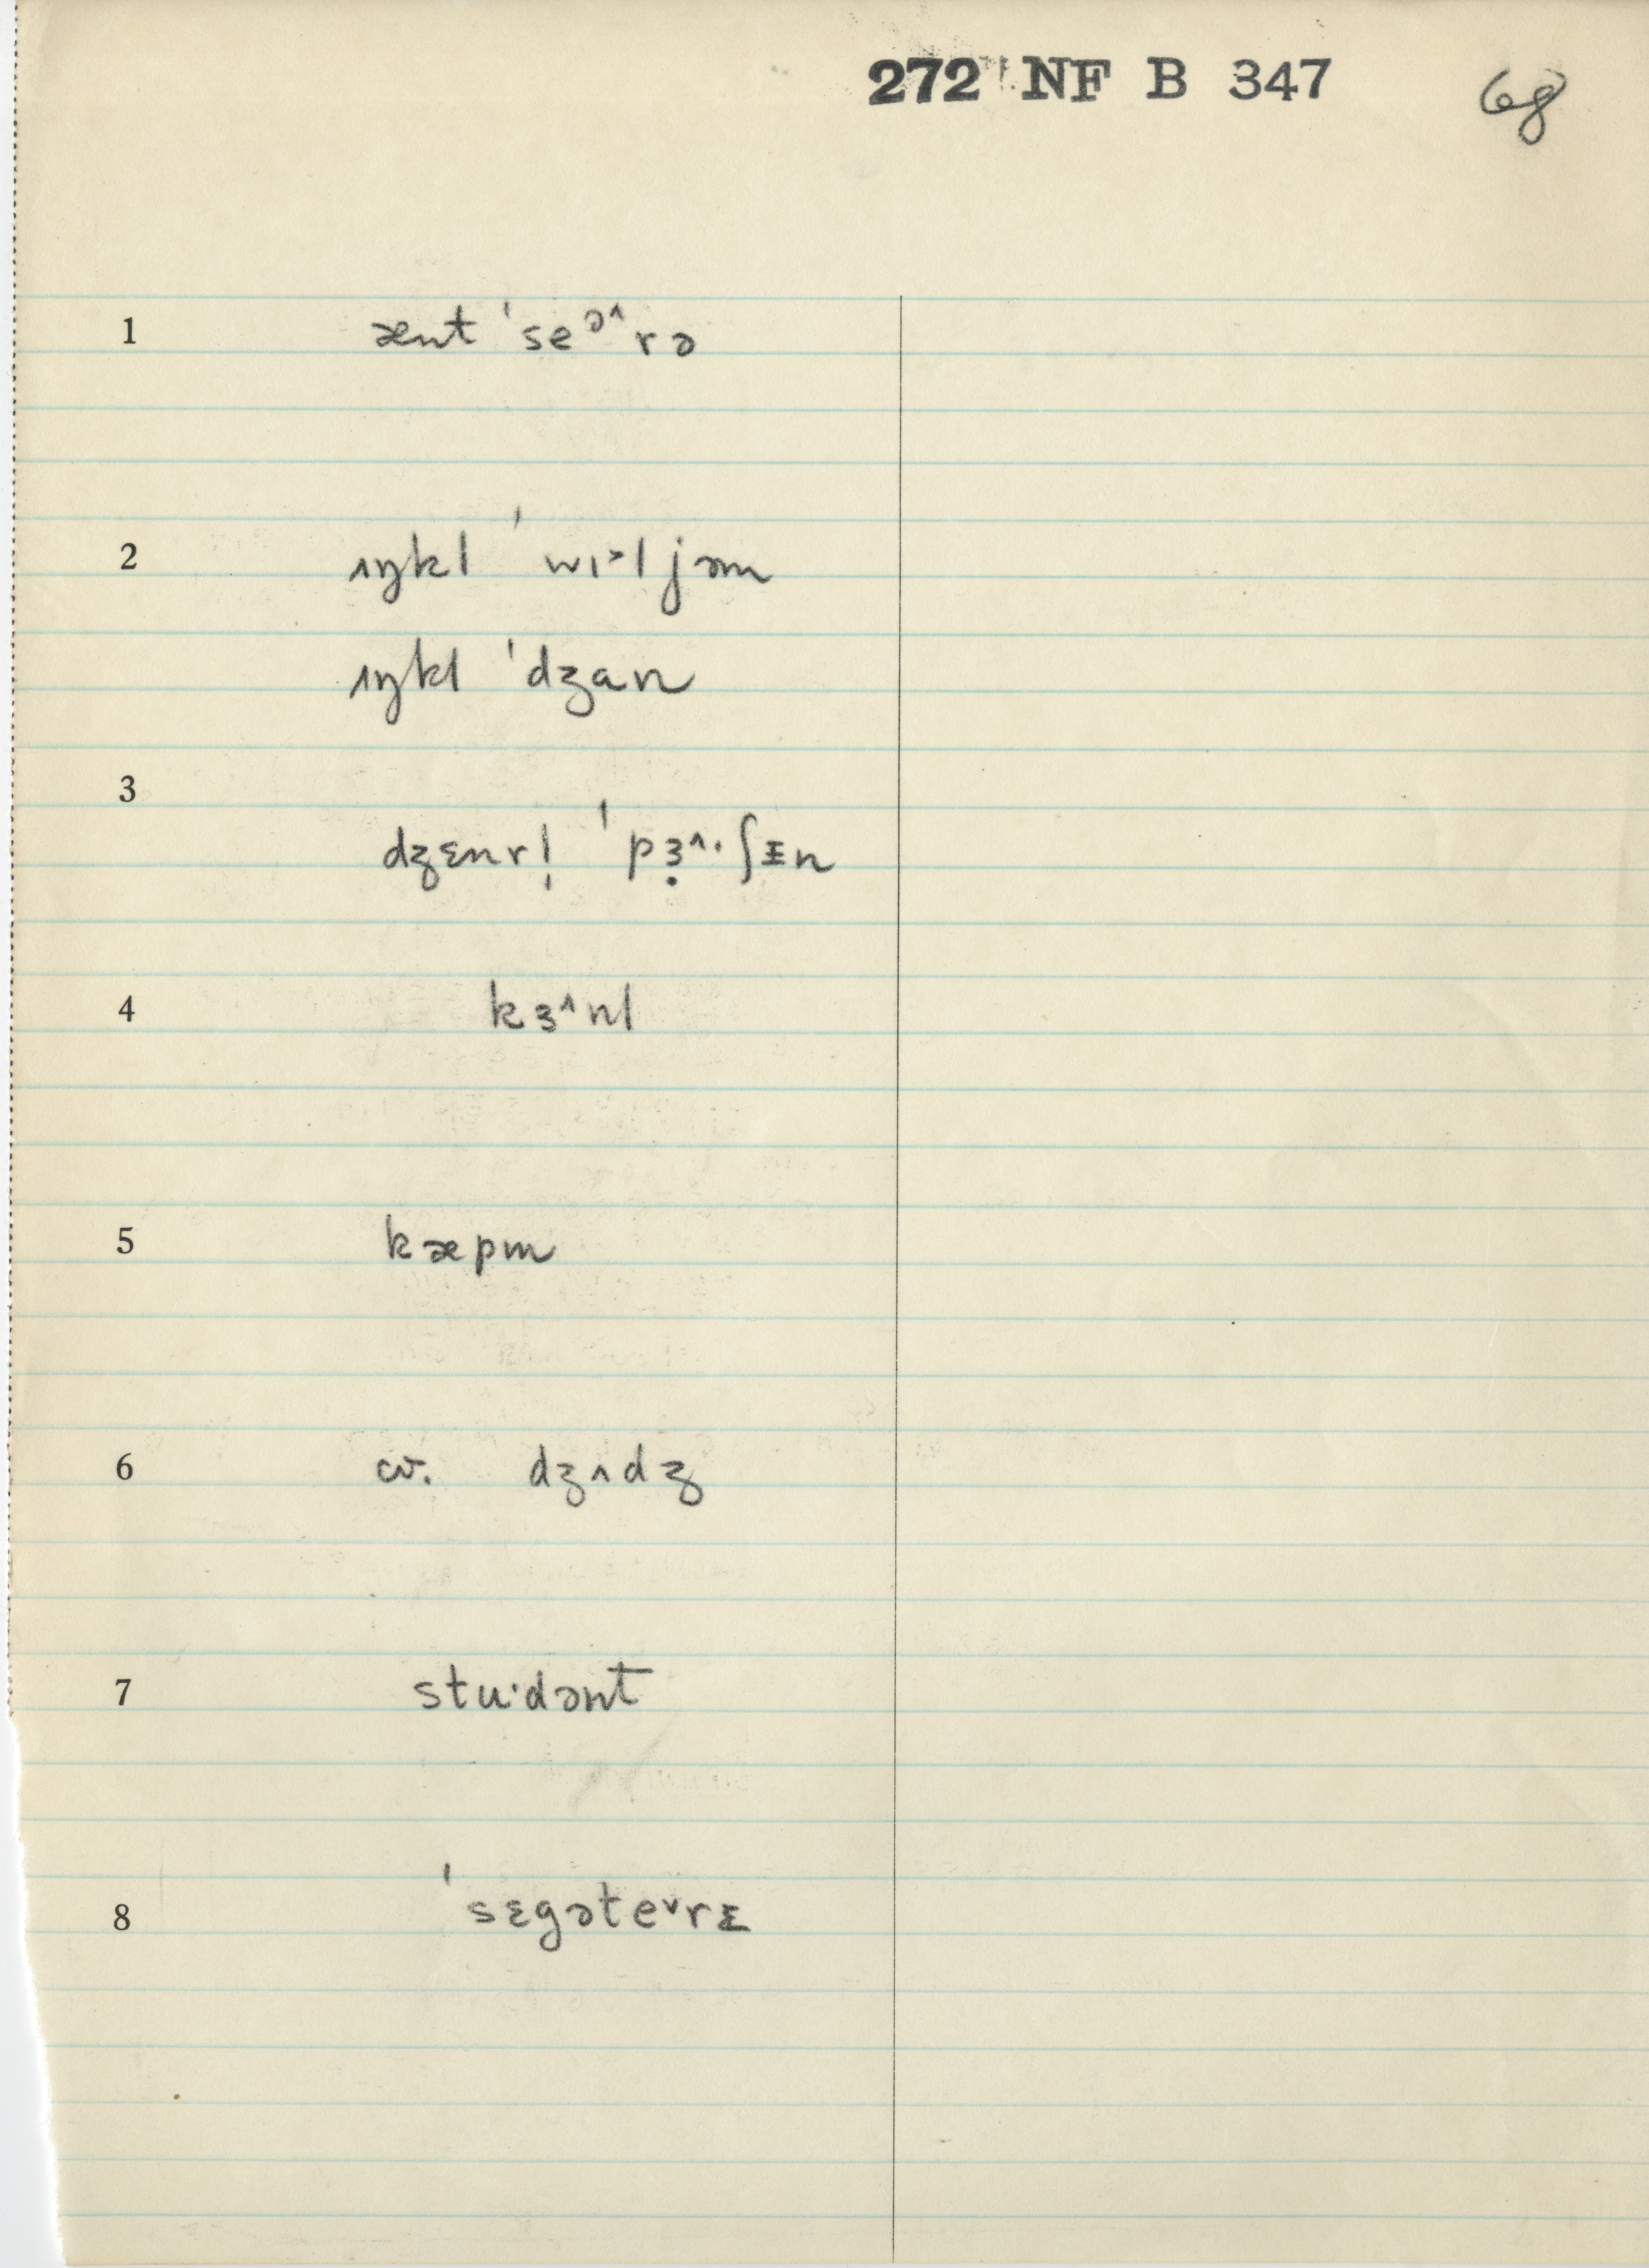 272 NF B 347 68
1 ænt ˈseᵊ˄rə
2 ʌŋkl ˈwɪ˃ljəm
ʌŋkl ˈdʒan
3 dʒɛnrl̩ ˈpɜ̣˄·ʃᵻn
4 kɜ˄nl
5 kæpm
6 cv. dʒʌdʒ
7 stu·dənt
8 ˈsɛgəte˅rɪ